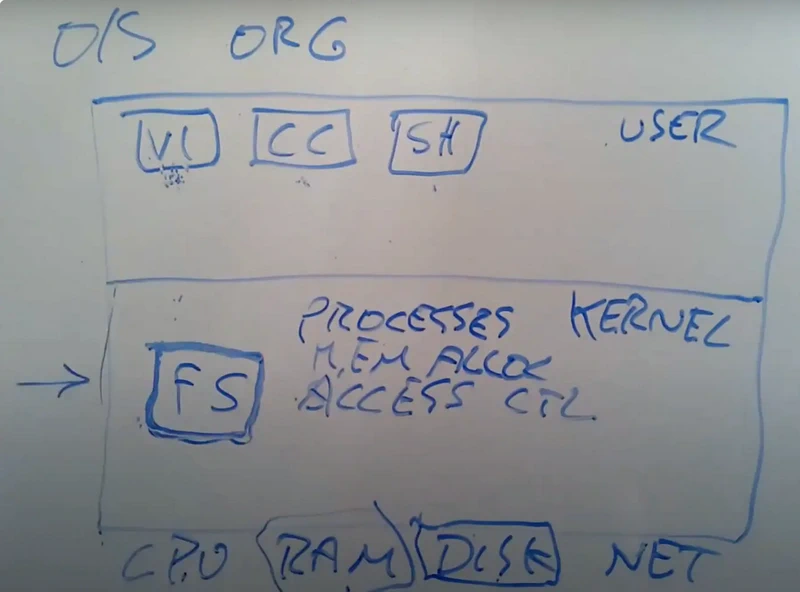 O/S ORG
VI CC SH USER
PROCESSES KERNEL
MEM ALLOC
FS ACCESS CTL
CPU RAM DISK NET